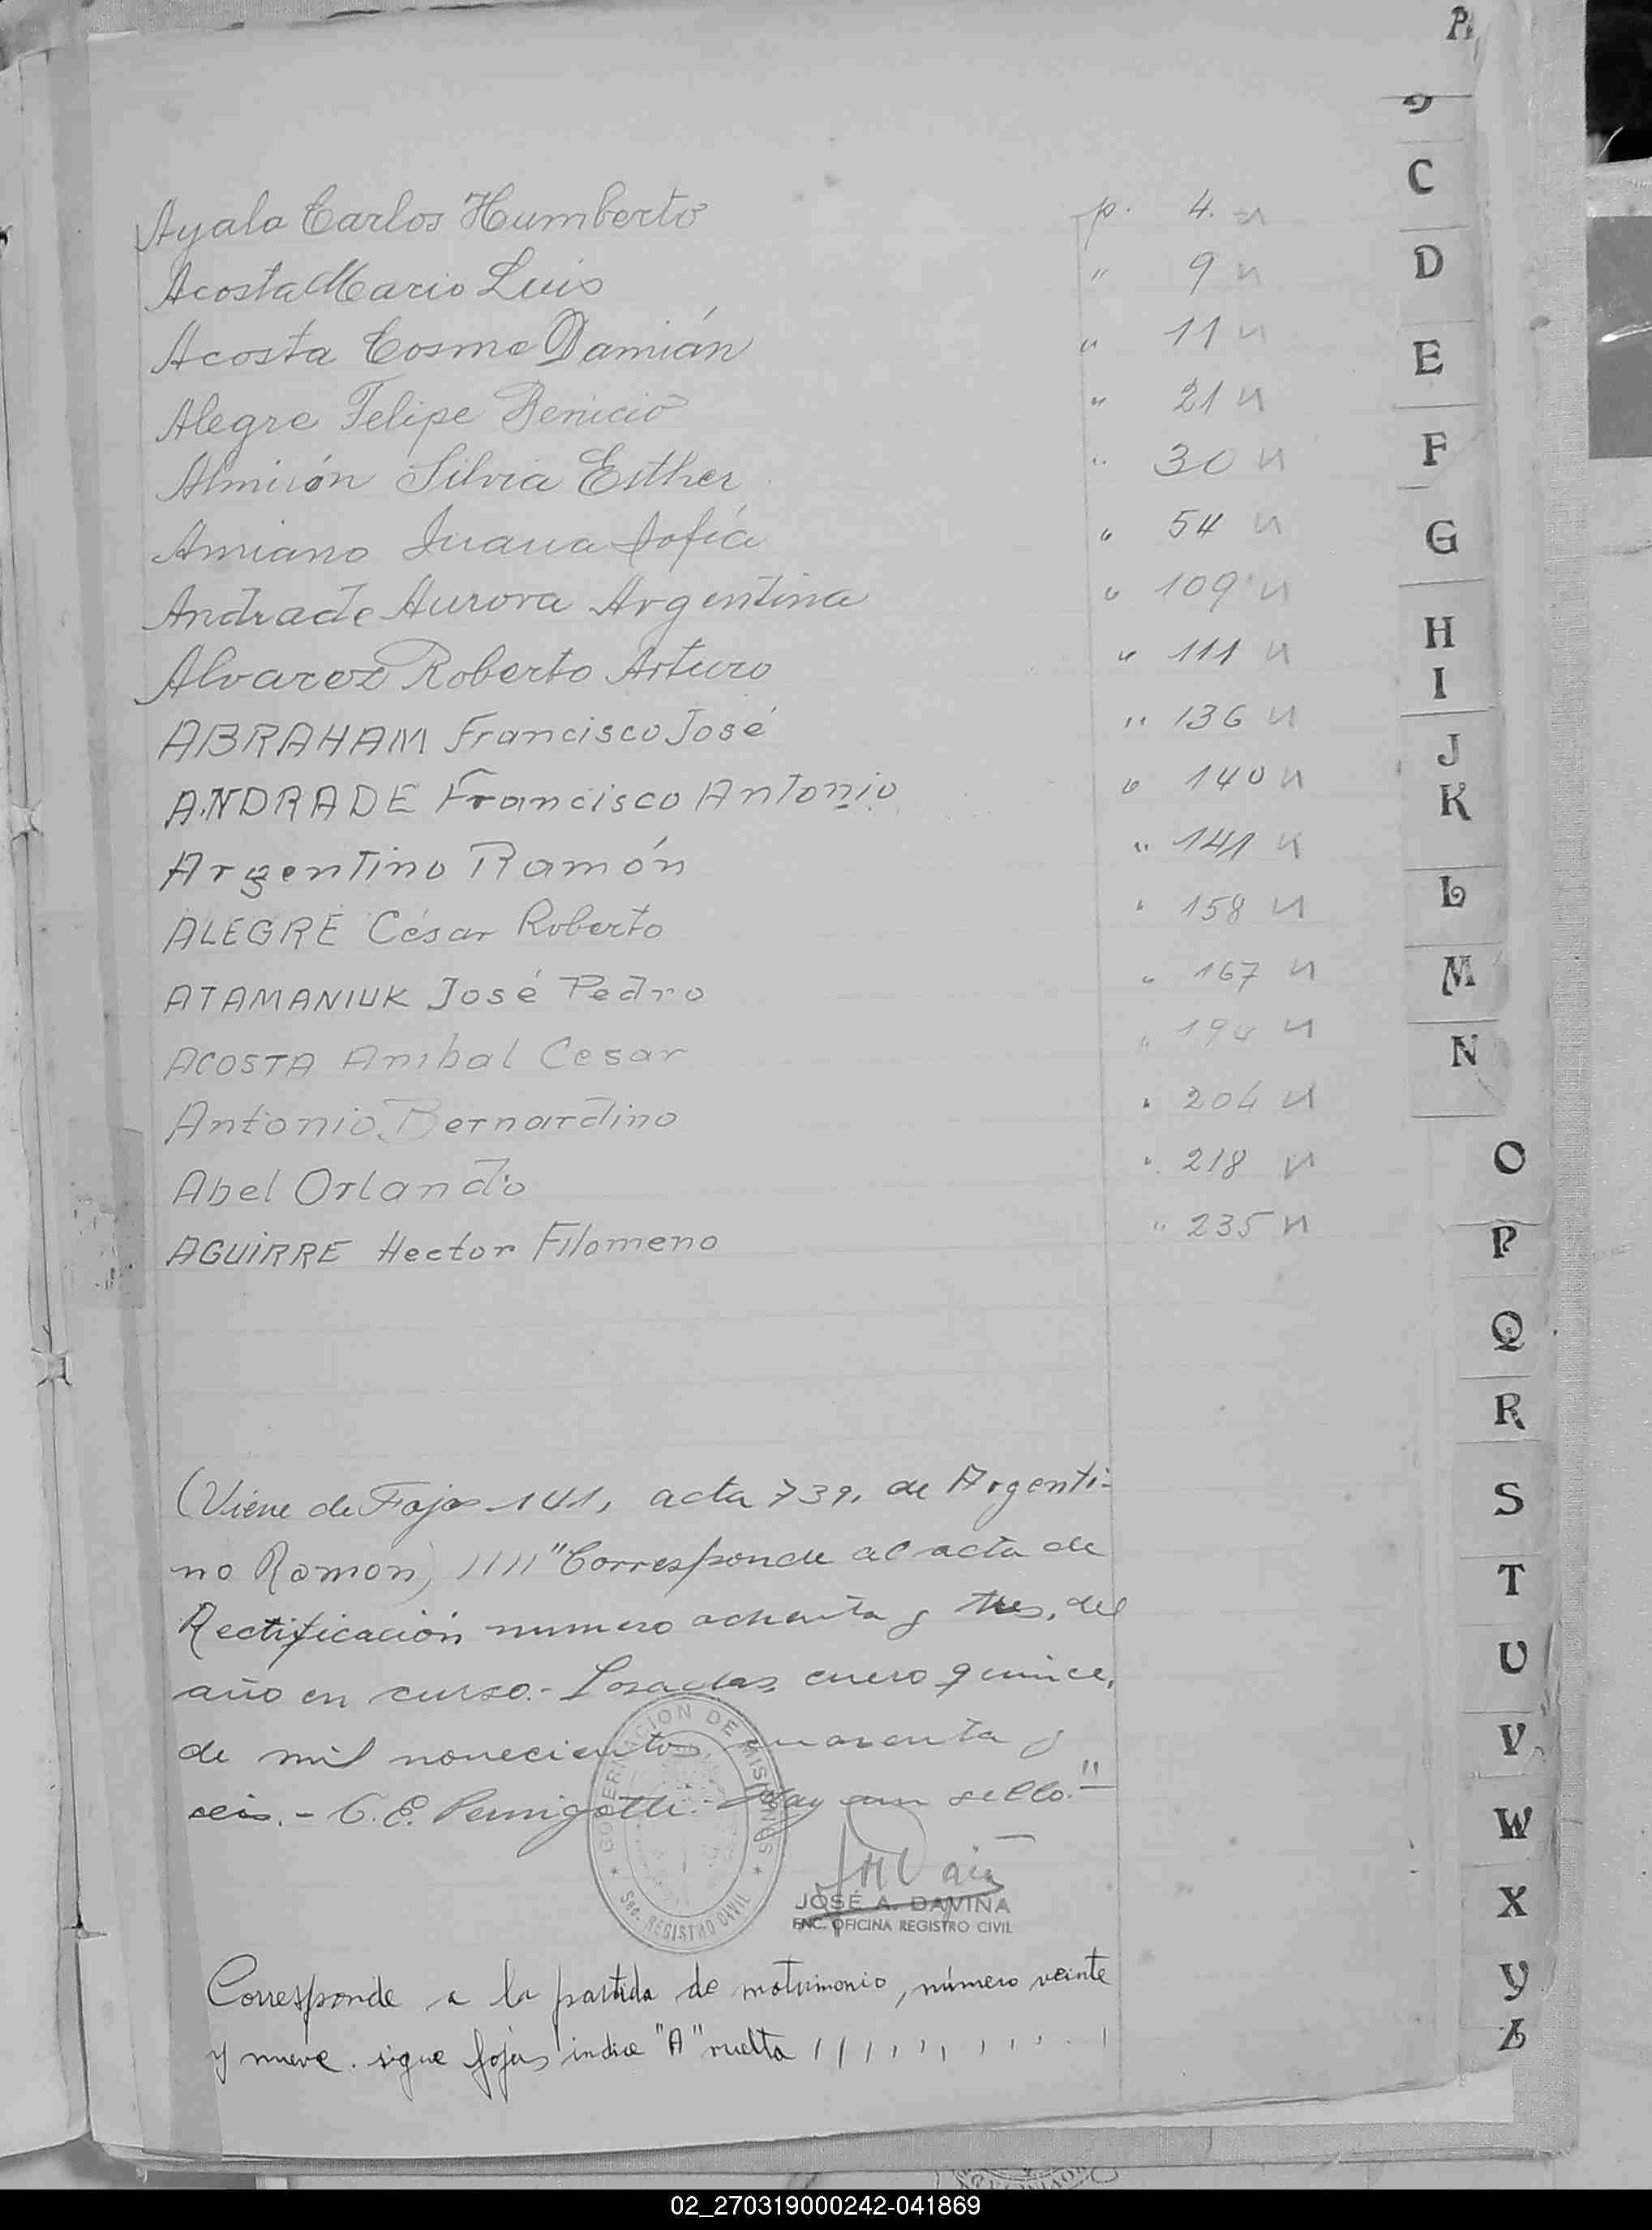 A
C
D
E
F
G
H
I
J
K
L
M
N
O
P
Q
R
S
T
U
V
W
X
Y
Z
Ayala Carlos Humberto p. 4.
Acosta Mario Luis " 9
Acosta Cosme Damián " 11
Alegre Felipe Benicio " 21
Almirón Silvia Esther " 30
Amiano Juana Sofía " 54
Andrade Aurora Argentina " 109
Alvarez Roberto Arturo " 111
ABRAHAM Francisco José " 136
ANDRADE Francisco Antonio " 140
Argentino Ramón " 141
ALEGRE César Roberto " 158
ATAMANIUK José Pedro " 167
ACOSTA Anibal Cesar "
Antonio Bernardino " 204
Abel Orlando " 218
AGUIRRE Hector Filomeno " 235
(Viene de Fojas 141, acta 739, de Argenti-
no Ramon) //// "Corresponde al acta de
Rectificación numero ochenta y tres, del
año en curso.- Posadas, enero quince,
de mil novecientos cuarenta y
seis.- C. E. Hay un sello."
GOBERNACION DE MISIONES
Sec. REGISTRO CIVIL
JOSÉ A. DAVIÑA
ENC. OFICINA REGISTRO CIVIL
Corresponde a la partida de matrimonio, número veinte
y nueve. sigue fojas indice "A" vuelta
02_270319000242-041869